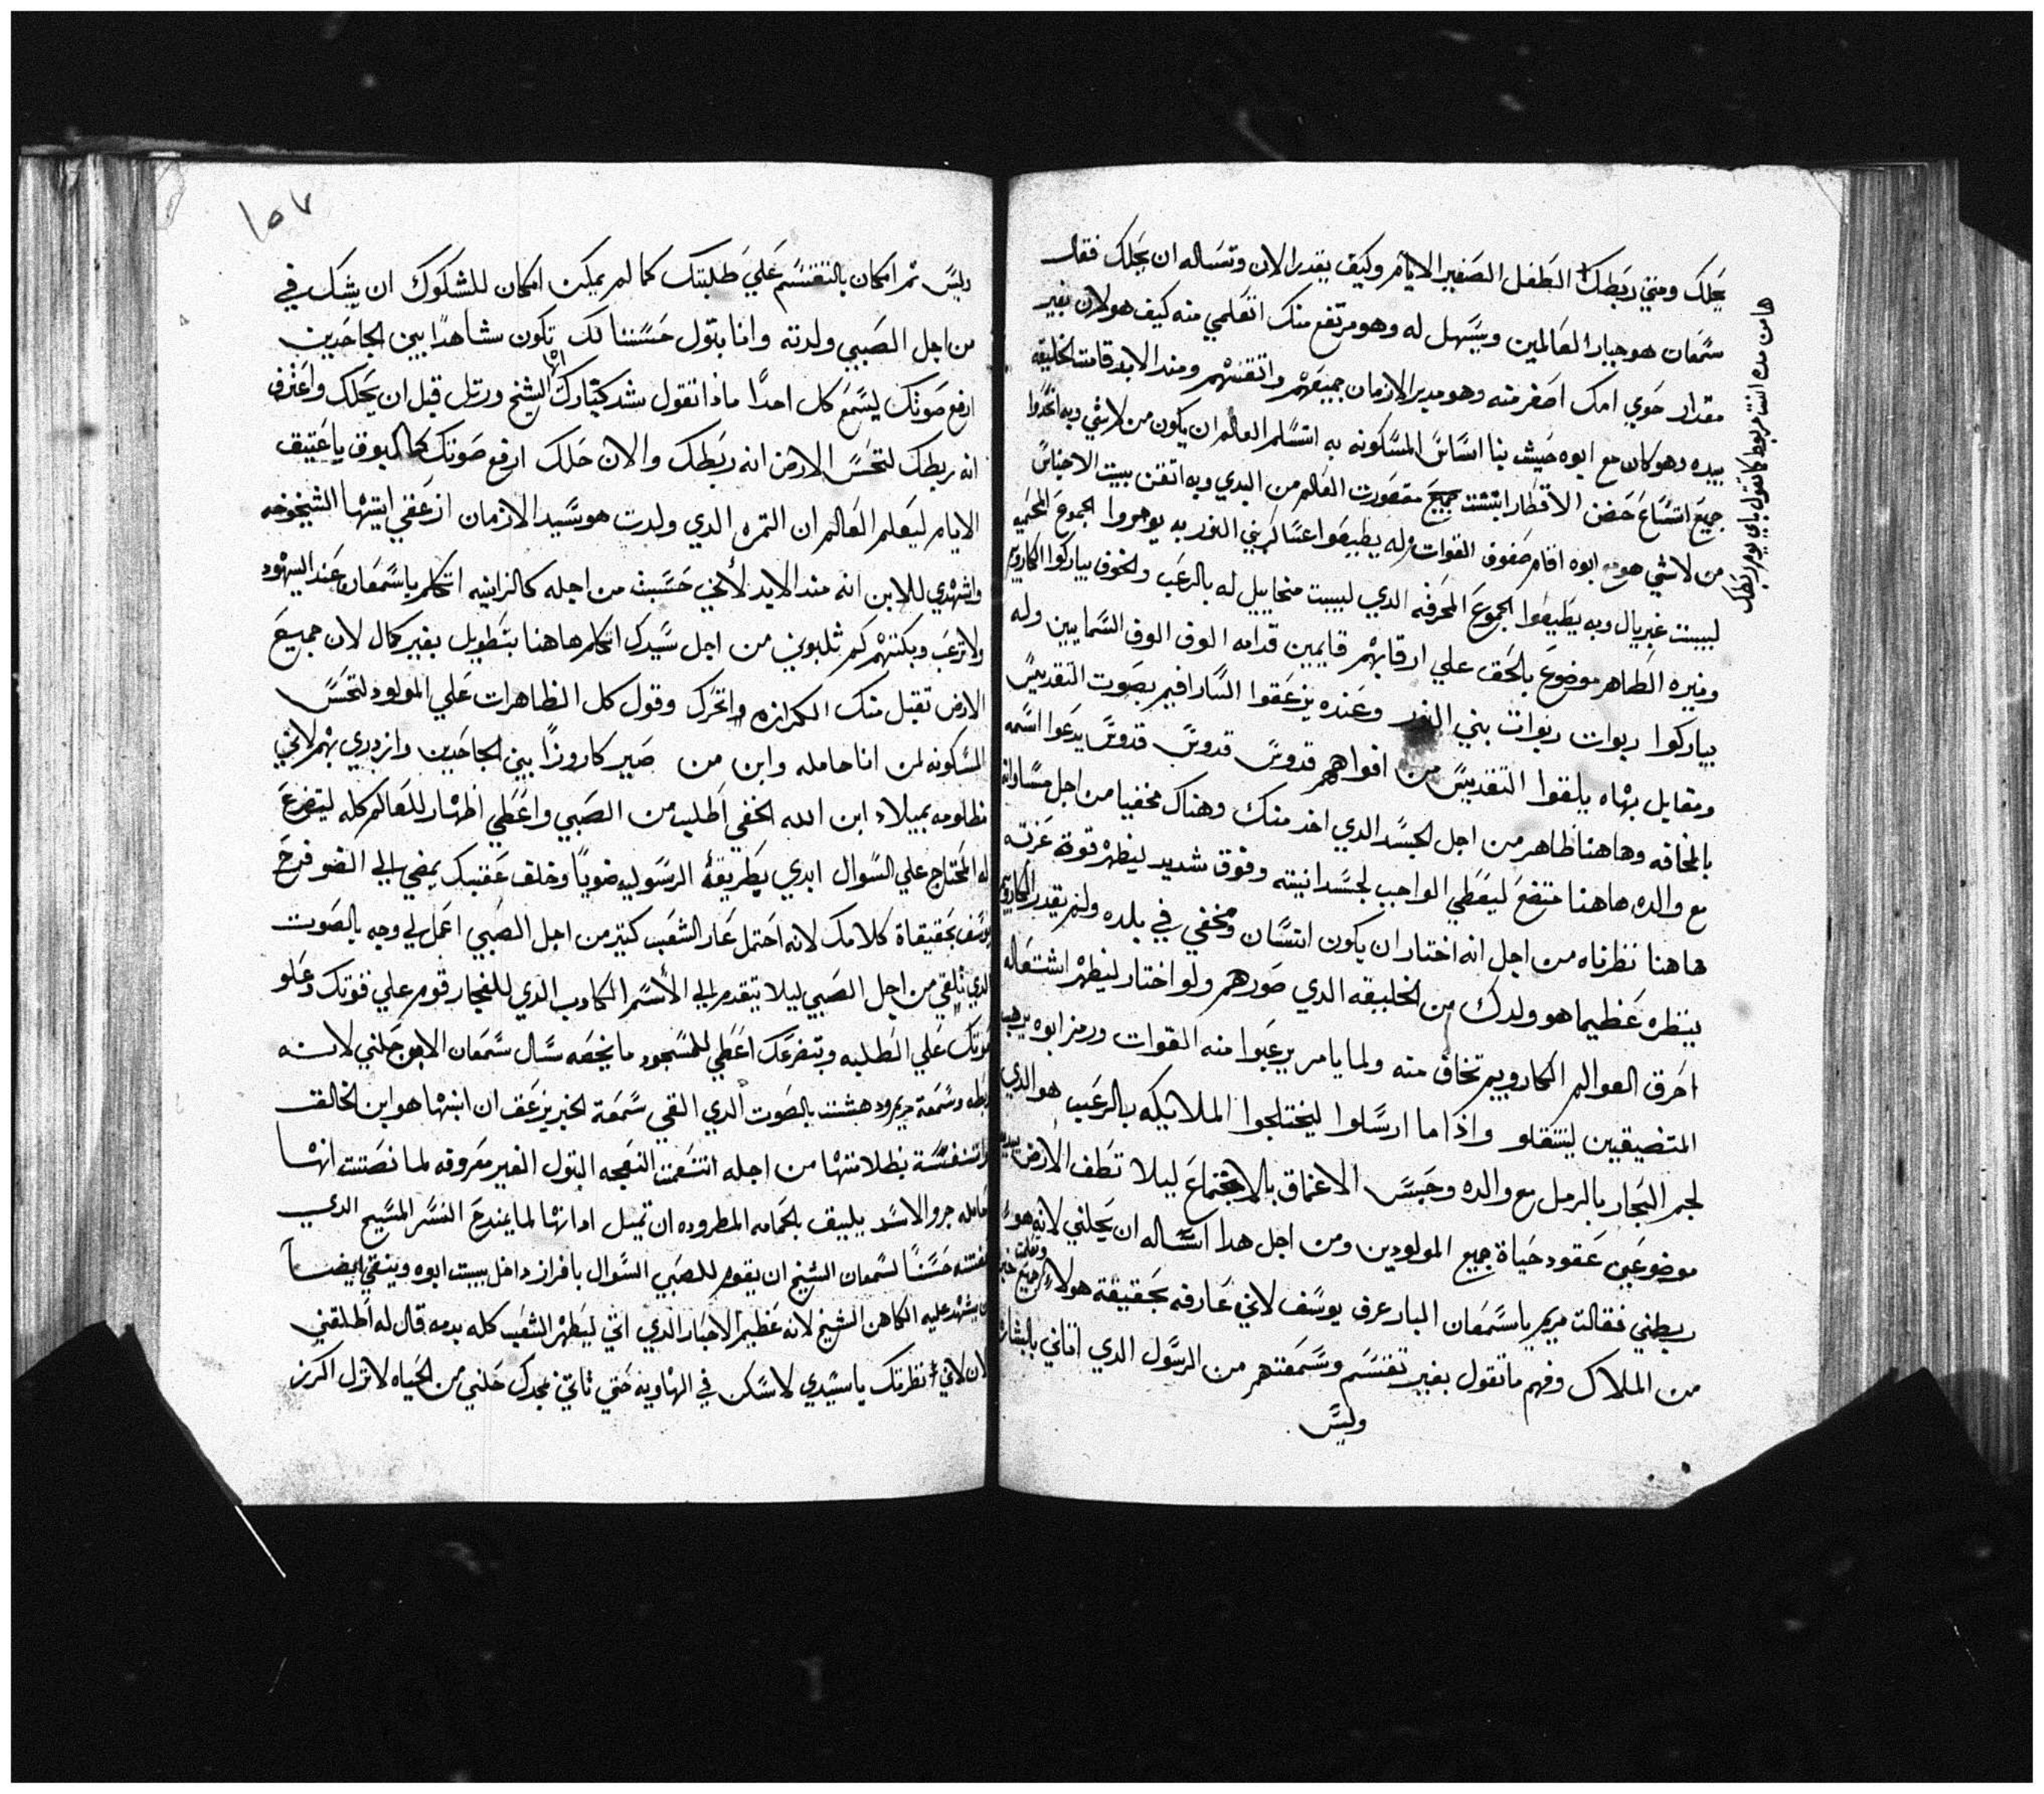 يحلك ومتي ربطك الطفل الصغير الايام وكيف يقدر الان وتساله ان يحلك فقال
سمعان هو جبار العالمين ويسهل له وهو مرتفع منك اتعلمي منه كيف هو لان بغير
مقدار حوي امك اصغر منه وهو مدير الازمان جميعهم واتقنهم ومند الابد قامت الخليقه
بيده وهو كان مع ابوه حيث بنا اساس المسكونه به استلم العالم ان يكون من لا شي وبه اتخدوا
جميع اتساع حضن الاقطار ابتنت جميع مقصورت العالم من البدي وبه اتقن ببيت الاجناس
من لا شي هو مع ابوه اقام صفوف القوات وله يطيعوا عساكر بني النور به يوهروا الجموع
لبيت غبريال وبه يطيعوا الجموع المحرفه الدي لبيت منخاييل له بالرعب والخوف يباركوا الكاروبيم
ونيره الطاهر موضوع بالحق علي ارقابهم قايمين قدامه الوف الوف السمايين وله
يباركوا ربوات ربوات بني النور وعنده يزعقوا السارافيم بصوت التقديس
ومقابل بهاه يلقوا التقديس من افواههم قدوس قدوس قدوس يدعوا اسمه
بالمخافه وهاهنا ظاهر من اجل الجسد الدي اخد منك وهناك مخفيا من اجل مساواته
مع والده هاهنا متضع ليعطي الواجب لجسدانيته وفوق شديد ليظهر قوة عزته
هاهنا نظرناه من اجل انه اختار ان يكون انسان ومخفي في بلده ولم يقدر الكاروبيم
ينظره عظيما هو ولدك من الخليقه الدي صورهم ولو اختار ليظهر اشتعاله
احرق العوالم الكاروبيم تخاف منه ولما يامر يرعبوا منه القوات ورمز ابوه يرهب
المتضيقين لينتقلو واذا ما ارسلوا ليختلجوا الملايكه بالرعب هو الدي
لجم البحار بالرمل مع والده وحبس الاعماق بالاجتماع ليلا تطف الارض بيده
موضوعين عقود حياة جميع المولودين ومن اجل هدا اساله ان يحلني لانه هو
ربطني فقالت مريم ياسمعان البار عرف يوسف لاني عارفه بحقيقة هولاء جميع
من الملاك وفهم ما تقول بغير تقسم وسمعتهم من الرسول الدي اتاني بالبشاره
وليس
هامن مده انت مربوط كما تقول باي يوم ربطك
١٥٧
وليس تم امكان بالتقسم علي طلبتك كما لم يمكن امكان للشكوك ان يشك في
من اجل الصبي ولدته وانا بتول حسنا لك تكون شاهدا بين الجاحدين
ارفع صوتك ليسمع كل احدا ماذا تقول شد كتارك ايها الشيخ ورتل قبل ان يحلك واعترف
انه ربطك لتحس الارض انه ربطك والان حلك ارفع صوتك كالبوق يا عتيق
الايام ليعلم العالم ان التمره الدي ولدت هو سيد الازمان ازعقي ايتها الشيخوخه
واشهدي للابن انه مند الابد لأنني حسبت من اجله كالزانيه اتكلم ياسمعان عند اليهود
ولا ترعب وبكتهم كم ثلبوني من اجل سيدك اتكلم هاهنا بتطويل بغير كمال لان جميع
الارض تقبل منك الكرازه واتحرك وقول كل الظاهرات علي المولود لتحس
المسكونه لمن انا حامله وابن من صير كاروزا بين الجاحدين وازدري بهم لاني
مظلومه بميلاد ابن الله الخفي اطلب من الصبي واعطي اظهار للعالم كله ليتضرع
له المحتاج علي السوال ابدي بطريقة الرسوليه ضويا وخلف عقبك يمضي الي الضو فرح
يوسف بحقيقاة كلامك لانه احتمل عار الشعب كتير من اجل الصبي اعمل لي وجه بالصوت
الدي تلقي من اجل الصبي ليلا يتقدم الي الأسم الكادب الدي للفجار قوم علي قوتك وعلو
صوتك علي الطلبه وبتضرعك اعطي للمسجود ما يخصه سال سمعان الابن حلني لانه
ربطه وسمعة مريم ودهشت بالصوت الدي القي سمعة الخبر يزعق ان ابنها هو ابن الخالق
واتنفسة بظلامتها من اجله انتعمت النعجه البتول الغير معروفه لما نصتت انها
حامله جرو الاسد يليق بالحمامه المطروده ان تميل اداتها لما يمتدح النسر المسيح الدي
حسنا لسمعان الشيخ ان يقوم للصبي السوال بافراز داخل بيت ابوه وينقي ايضا
ان يشهد عليه الكاهن الشيخ لانه عظيم الاحبار الدي اتي ليطهر الشعب كله بدمه قال له اطلقني
الان لاني نظرتك ياسيدي لاسكن في الهاويه حتي تاتي بمجدك حلني من الحياه لانزل اكرز